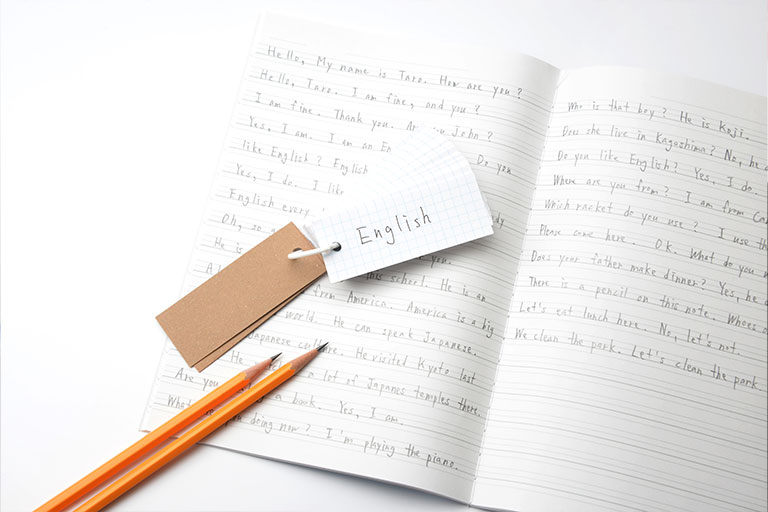 Hello, My name is Taro. How are you?
Hello, Taro. I am fine, and you?
I am fine. Thank you. Are you John?
Yes, I am. I am an En
like English? English Do you
Yes, I do. I like
English every
Oh, so
He is you.
this school. He is an
from America. America is a big
world. He can speak Japanese.
Japanese culture. He visited Kyoto last
He a lot of Japanes temples there.
Are you a book. Yes, I am.
What doing now? I'm playing the piano.
English
Who is that boy? He is Koji.
Does she live in Kagoshima? No, he
Do you like English? Yes, I do.
Where are you from? I am from Can
Which racket do you use? I use th
Please come here. Ok. What do you
Does your father make dinner? Yes, he
There is a pencil on this note. Whoes
Let's eat lunch here. No, let's not.
We clean the park. Let's clean the park.